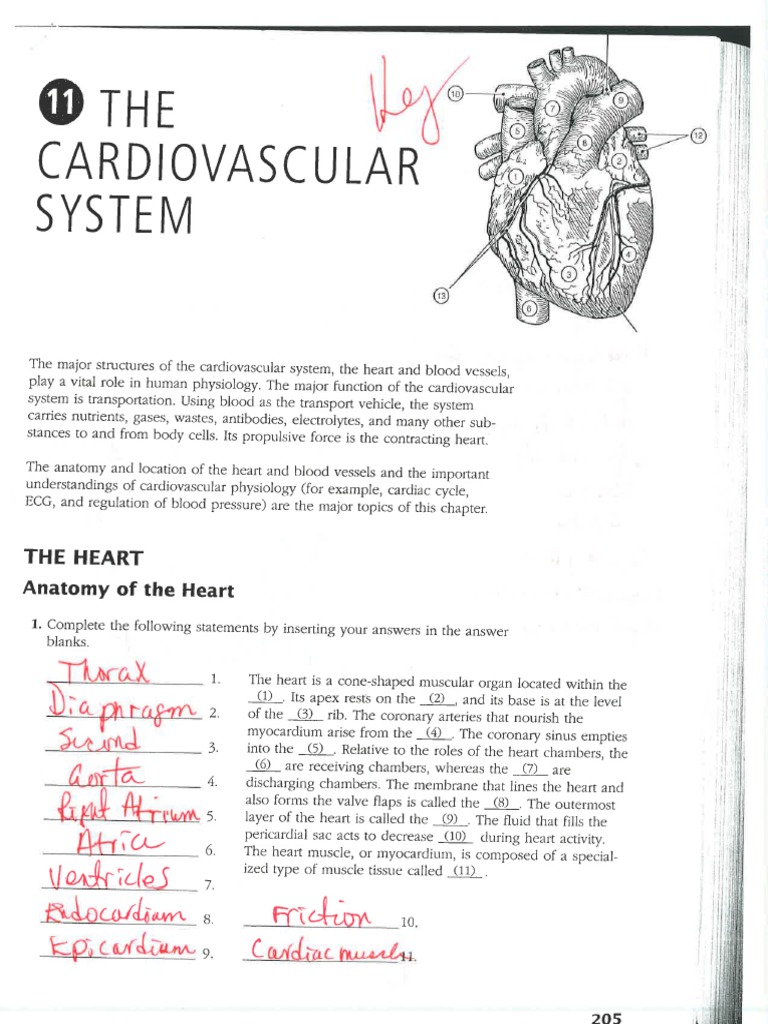 Key
11 THE
CARDIOVASCULAR
SYSTEM
10
9
7
5
8
12
2
1
4
3
13
6
The major structures of the cardiovascular system, the heart and blood vessels,
play a vital role in human physiology. The major function of the cardiovascular
system is transportation. Using blood as the transport vehicle, the system
carries nutrients, gases, wastes, antibodies, electrolytes, and many other sub-
stances to and from body cells. Its propulsive force is the contracting heart.
The anatomy and location of the heart and blood vessels and the important
understandings of cardiovascular physiology (for example, cardiac cycle,
ECG, and regulation of blood pressure) are the major topics of this chapter.
THE HEART
Anatomy of the Heart
1. Complete the following statements by inserting your answers in the answer
blanks.
Thorax 1.
Diaphragm 2.
Second 3.
Aorta 4.
Right Atrium 5.
Atria 6.
Ventricles 7.
Endocardium 8.
Epicardium 9.
The heart is a cone-shaped muscular organ located within the
(1) . Its apex rests on the (2) , and its base is at the level
of the (3) rib. The coronary arteries that nourish the
myocardium arise from the (4) . The coronary sinus empties
into the (5) . Relative to the roles of the heart chambers, the
(6) are receiving chambers, whereas the (7) are
discharging chambers. The membrane that lines the heart and
also forms the valve flaps is called the (8) . The outermost
layer of the heart is called the (9) . The fluid that fills the
pericardial sac acts to decrease (10) during heart activity.
The heart muscle, or myocardium, is composed of a special-
ized type of muscle tissue called (11) .
Friction 10.
Cardiac muscle 11.
205